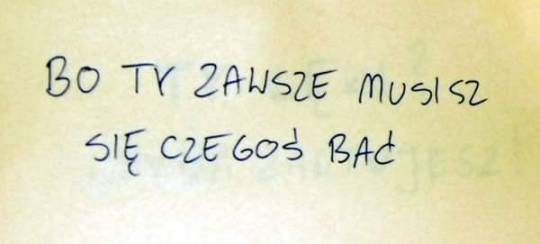 BO TY ZAWSZE MUSISZ
SIĘ CZEGOŚ BAĆ